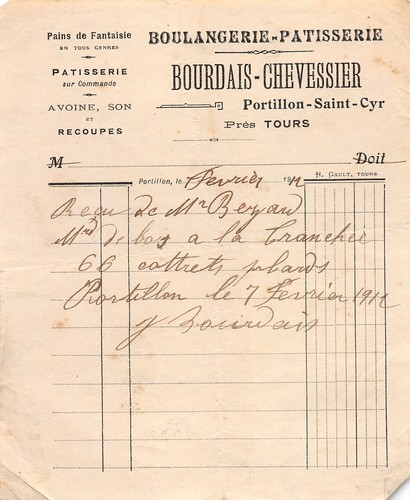 Pains de Fantaisie
EN TOUS GENRES
PATISSERIE
sur Commande
AVOINE, SON
ET
RECOUPES
BOULANGERIE-PATISSERIE
BOURDAIS-CHEVESSIER
Portillon-Saint-Cyr
Près TOURS
M Doit
Portillon, le 7 Fevrier 1912
H. GAULT, TOURS
Reçu de Mr Bezard
Md de bois a la Tranchée
66 cottrets
Portillon le 7 Fevrier 1912
Bourdais